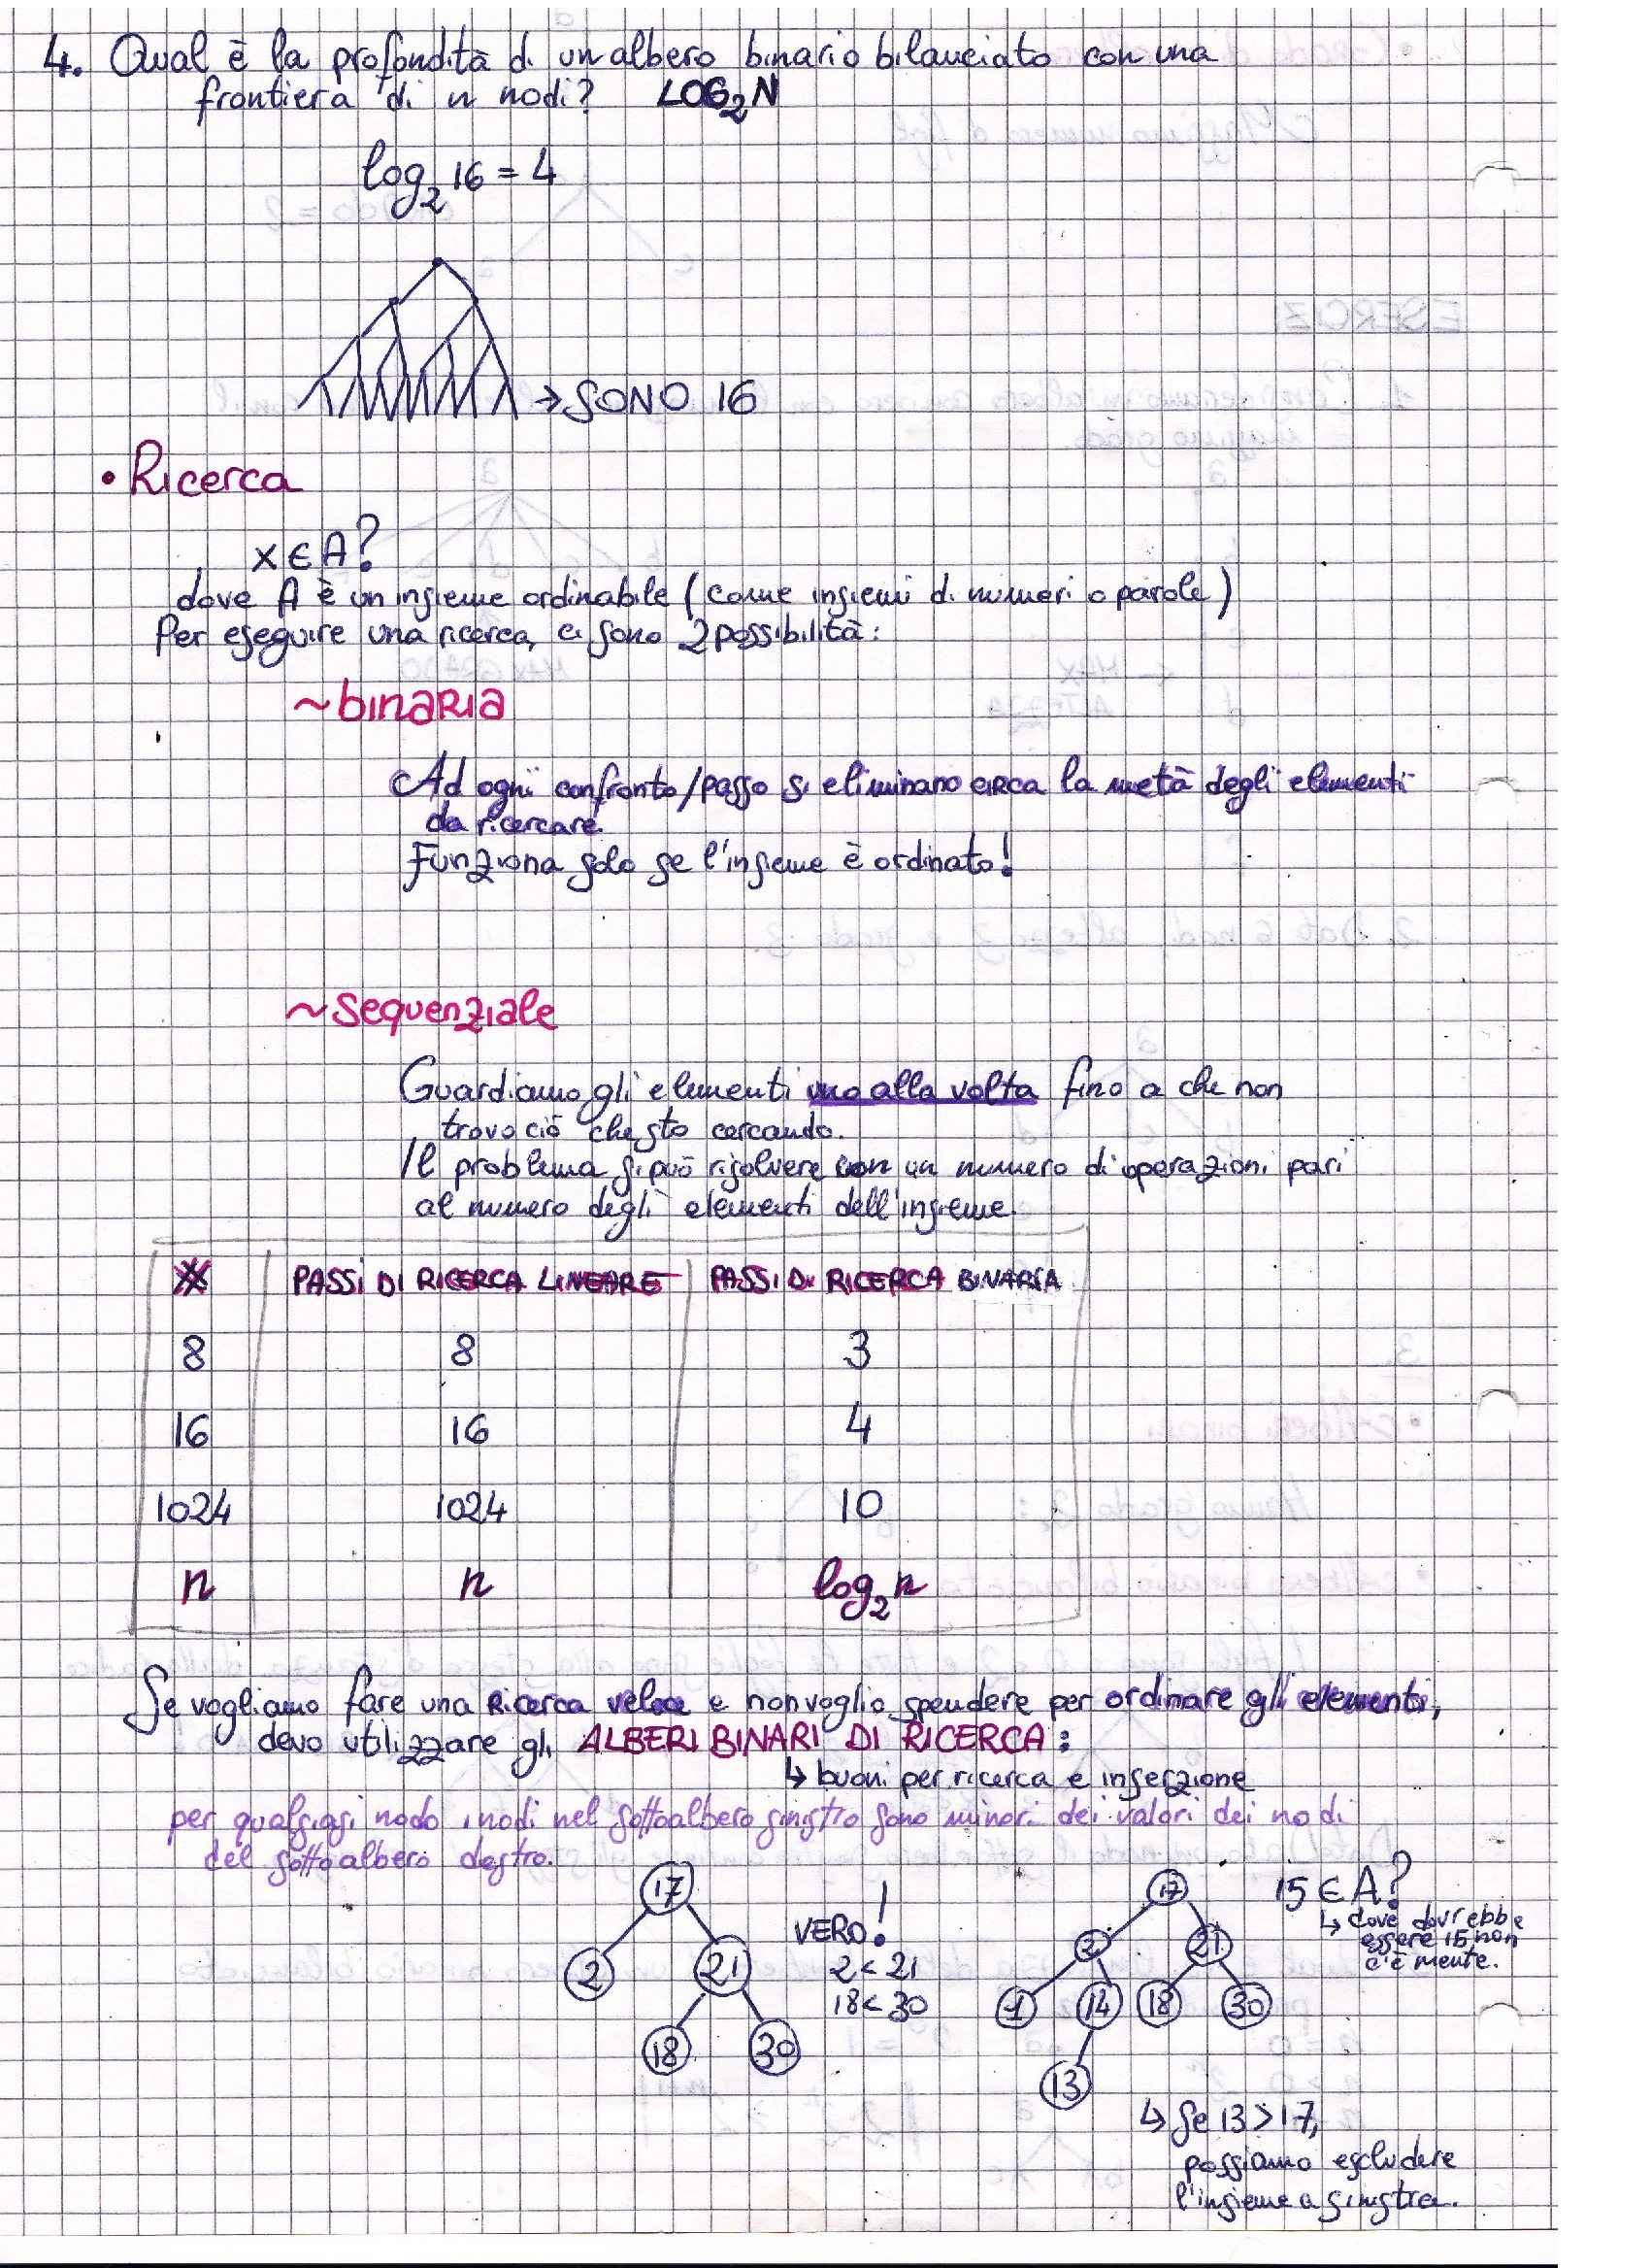 4. Qual è la profondità di un albero binario bilanciato con una
frontiera di n nodi? LOG₂N
log₂ 16 = 4
→ SONO 16
• Ricerca
x ∈ A?
dove A è un insieme ordinabile (come insiemi di numeri o parole)
Per eseguire una ricerca, ci sono 2 possibilità:
~ binaria
Ad ogni confronto/passo si eliminano circa la metà degli elementi
da ricercare.
Funziona solo se l'insieme è ordinato!
~ Sequenziale
Guardiamo gli elementi uno alla volta fino a che non
trovo ciò che sto cercando.
Il problema si può risolvere con un numero di operazioni pari
al numero degli elementi dell'insieme.
PASSI DI RICERCA LINEARE PASSI DI RICERCA BINARIA
8 8 3
16 16 4
1024 1024 10
n n log₂n
Se vogliamo fare una ricerca veloce e non voglio spendere per ordinare gli elementi,
devo utilizzare gli ALBERI BINARI DI RICERCA:
↳ buoni per ricerca e inserzione
per qualsiasi nodo i nodi nel sottoalbero sinistro sono minori dei valori dei nodi
del sottoalbero destro.
17
2 21
18 30
VERO!
2 < 21
18 < 30
17
2 21
1 14 18 30
13
15 ∈ A?
↳ dove dovrebbe
essere 15 non
c'è niente.
↳ Se 13 > 17,
possiamo escludere
l'insieme a sinistra.